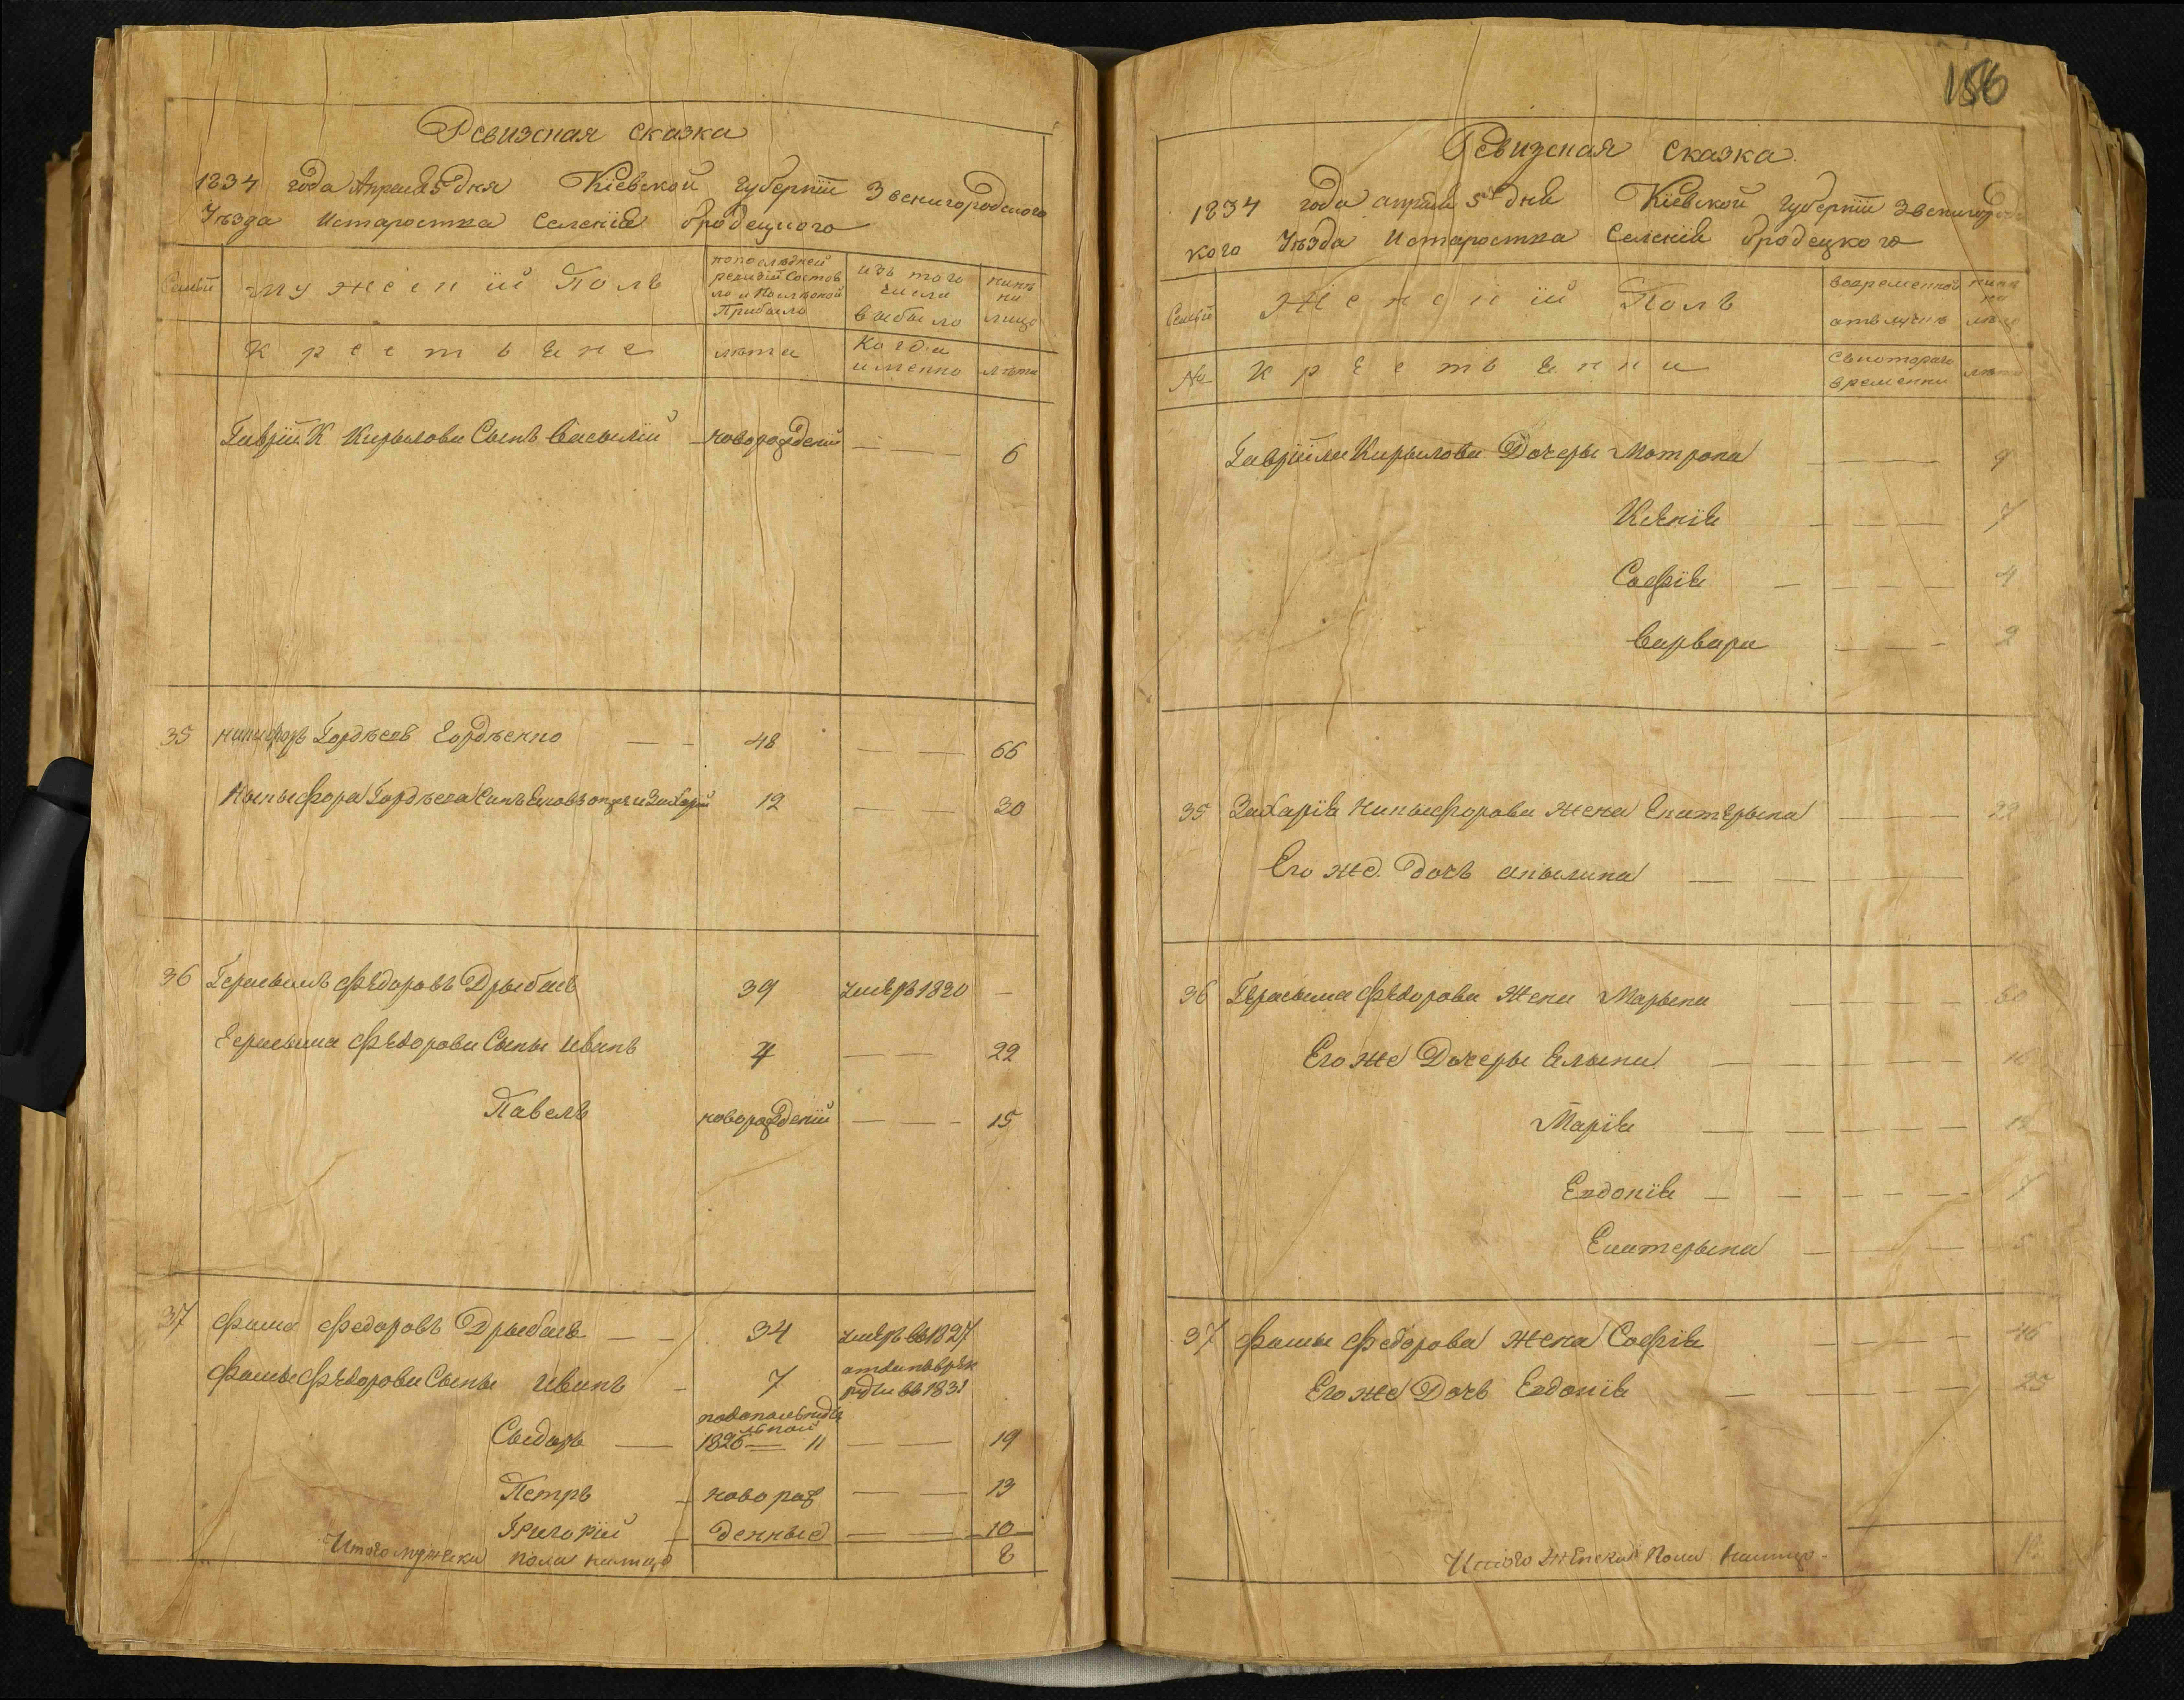 Ревизсная сказка
1834 года Апреля 5 дня Кіевской Губерніи Звенигородского
Уезда Истаростка Селенія бродецкого
Семьи
мужескій Полъ
попослядней
ревизіи состоя
ло и
Прибыло
изъ того
числа
выбыло
ныне
на
лицо
Крестьяне
лета
Когда
именно
лета
Гаврій К Кирылова Сынъ Василій новорожденій — — — 6
35 Никифоръ Гордѣевъ Гордѣенко — — 48 — — 66
Ныкыфора Гордѣева Сынъ Захарій 12 — — 30
36 Герасымъ Федоровъ Дрыбасъ 39 умеръ 1820 —
Герасыма Федорова Сыны Иванъ 7 — — 22
Павелъ новорожденій — — — 15
37 Фома Федоровъ Дрыбасъ — — 34 умеръ въ 1827
Фомы Федорова Сыны Иванъ — 7 въ 1831
Сыдоръ — 1826 — 11 — — 19
Петръ — новорож — — 13
Григорій — денные — — 10
Итого мужеска пола налицо 8
156
Ревизсная сказка
1834 года апреля 5 дня Кіевской Губерніи Звенигородс
кого Уезда Истаростка Селенія бродецкого
Семьи
Женскій Полъ
вовременной
отлучке
ныне
на
лицо
№
Крестьянки
Скоторого
времени
лета
Гавріила Кирылова Дочеры Мотрона — — 9
Ксенія — — — 7
Софія — — — — 4
Варвара — — — 2
35 Захарія Никыфорова жена Екатерына — — — 22
Его же дочь — — — —
36 Герасыма Федорова Жена Марына — — — — 60
Его же Дочеры — — — — —
Марія — — — — —
Евдокія — — — — — 7
Екатерына — — — — 5
37 Фомы Федорова жена Софія — — — — 46
Его же Дочь Евдокія — — — — — 25
Итого Женска Пола налицо